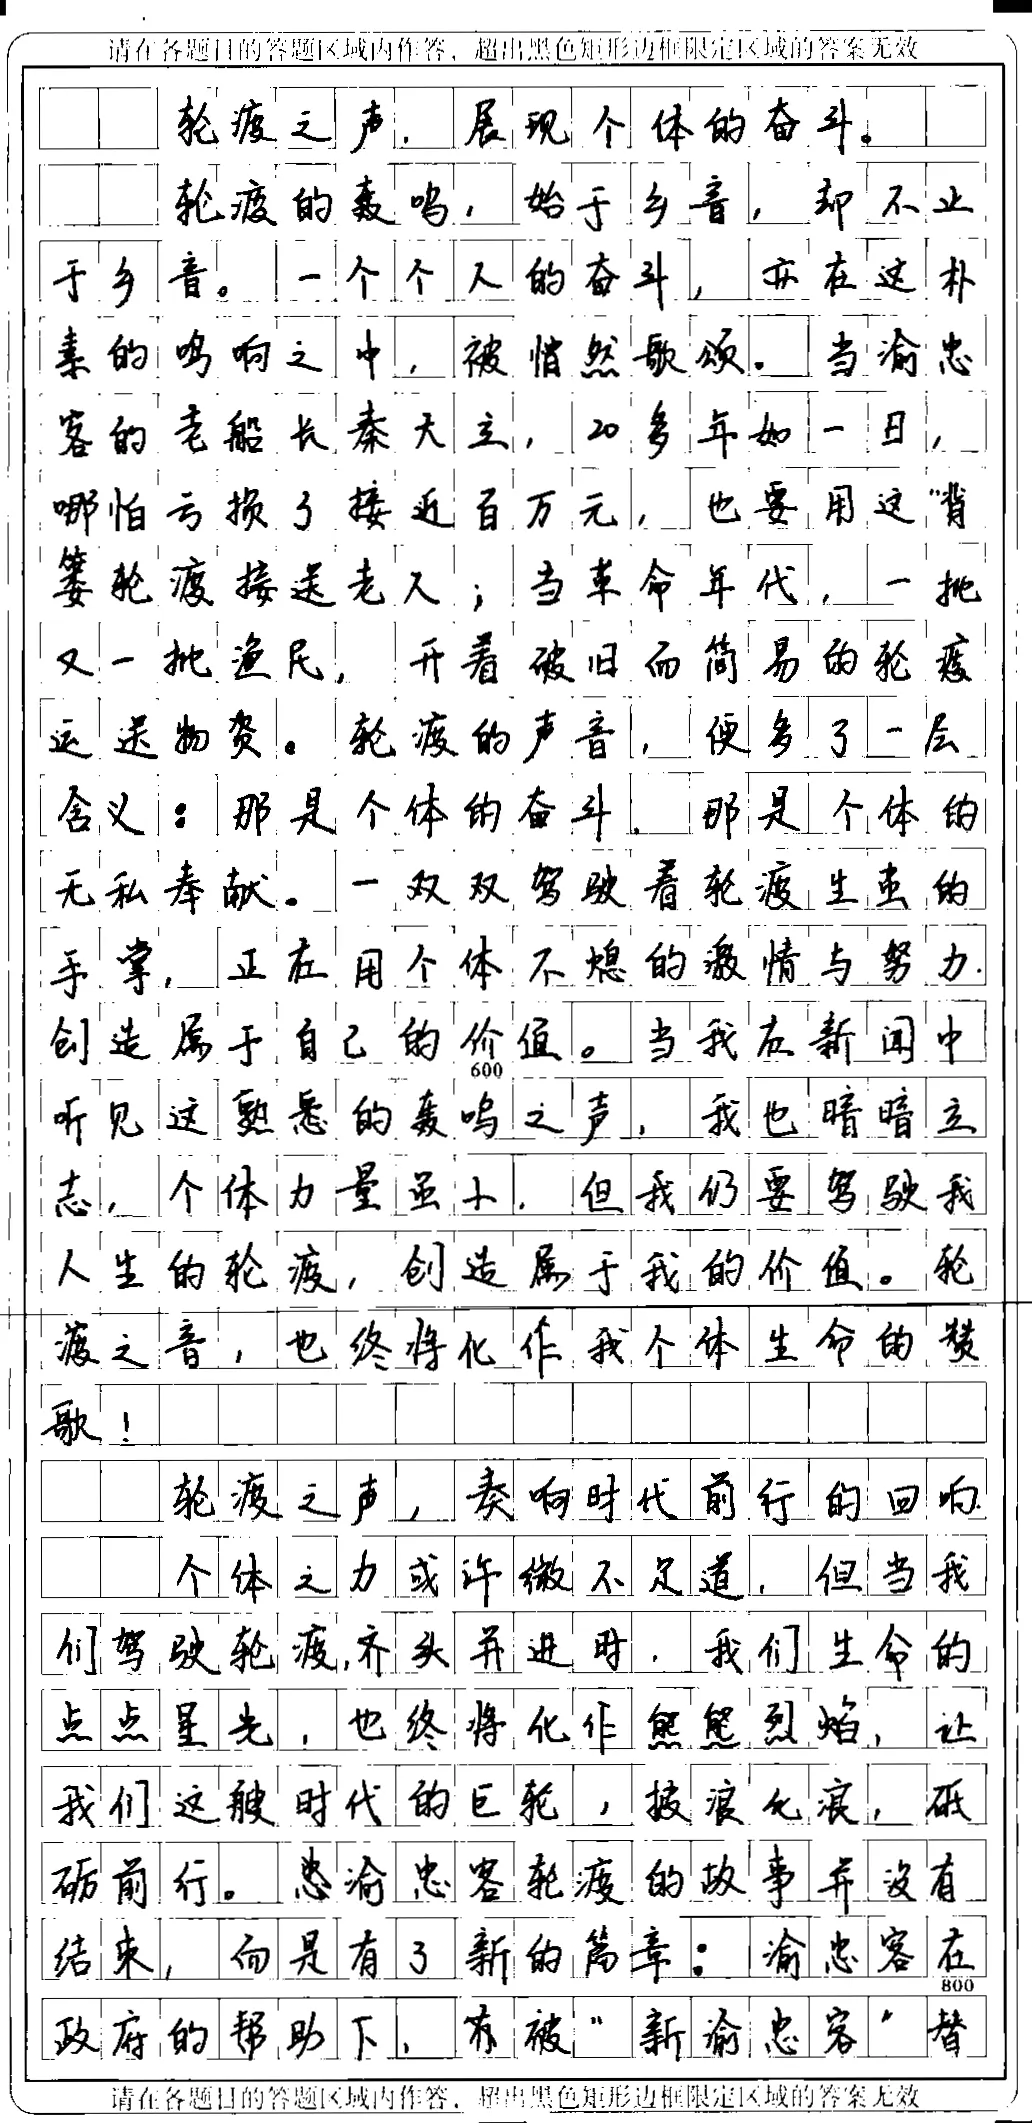 请在各题目的答题区域内作答，超出黑色矩形边框限定区域的答案无效
轮渡之声，展现个体的奋斗。
轮渡的轰鸣，始于乡音，却不止
于乡音。一个个人的奋斗，亦在这朴
素的鸣响之中，被悄然歌颂。当渝忠
客的老船长秦大立，20多年如一日，
哪怕亏损了接近百万元，也要用这“背
篓轮渡接送老人；当革命年代，一批
又一批渔民，开着破旧而简易的轮渡
运送物资。轮渡的声音，便多了一层
含义：那是个体的奋斗，那是个体的
无私奉献。一双双驾驶着轮渡生茧的
手掌，正在用个体不熄的激情与努力
创造属于自己的价值。当我在新闻中
600
听见这熟悉的轰鸣之声，我也暗暗立
志，个体力量虽小，但我仍要驾驶我
人生的轮渡，创造属于我的价值。轮
渡之音，也终将化作我个体生命的赞
歌！
轮渡之声，奏响时代前行的回响
个体之力或许微不足道，但当我
们驾驶轮渡，齐头并进时，我们生命的
点点星光，也终将化作熊熊烈焰，让
我们这艘时代的巨轮，披浪化浪，砥
砺前行。渝忠客轮渡的故事并没有
结束，而是有了新的篇章：渝忠客在
800
政府的帮助下，有被“新渝忠客”替
请在各题目的答题区域内作答，超出黑色矩形边框限定区域的答案无效